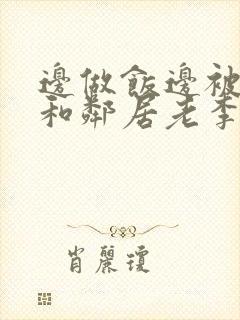 邊做飯邊被
和鄰居老李
肖麗瓊